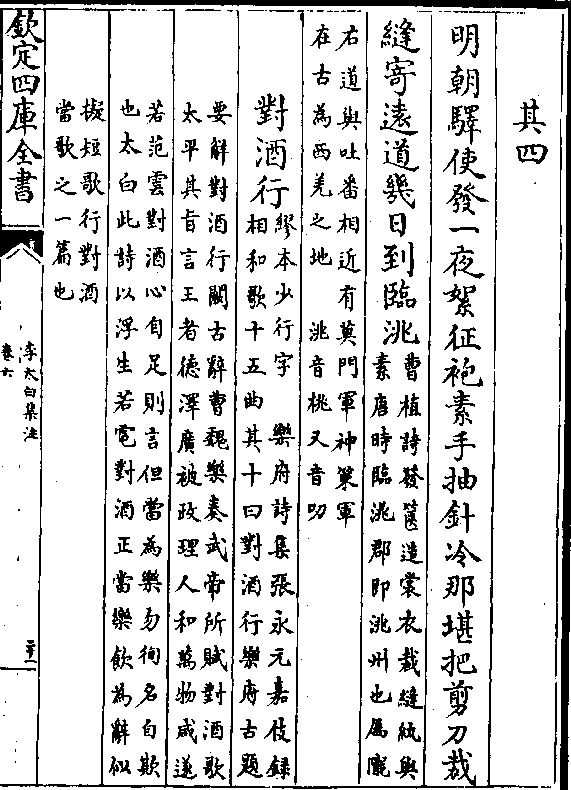 其四
明朝驛使發一夜絮征袍素手抽針冷那堪把剪刀裁
縫寄遠道幾日到臨洮
曹植詩發篋造裳衣裁縫紈與
素唐時臨洮郡即洮州也屬隴
右道與吐番相近有莫門軍神策軍
在古為西羌之地 洮音桃又音叨
對酒行
繆本少行字 樂府詩集張永元嘉伎録
相和歌十五曲其十曰對酒行樂府古題
要解對酒行闕古辭曹魏樂奏武帝所賦對酒歌
太平其㫖言王者德澤廣被政理人和萬物咸遂
若范雲對酒心自足則言但當為樂勿徇名自欺
也太白此詩以浮生若電對酒正當樂飲為辭似
擬短歌行對酒
當歌之一篇也
欽定四庫全書
李太白集注
卷六